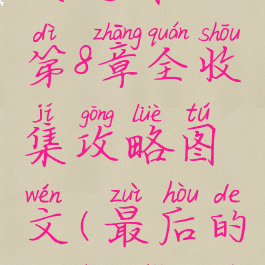 dì zhāng quán shōu
第8章全收
jí gōng lüè tú
集攻略图
wén zuì hòu de
文(最后的